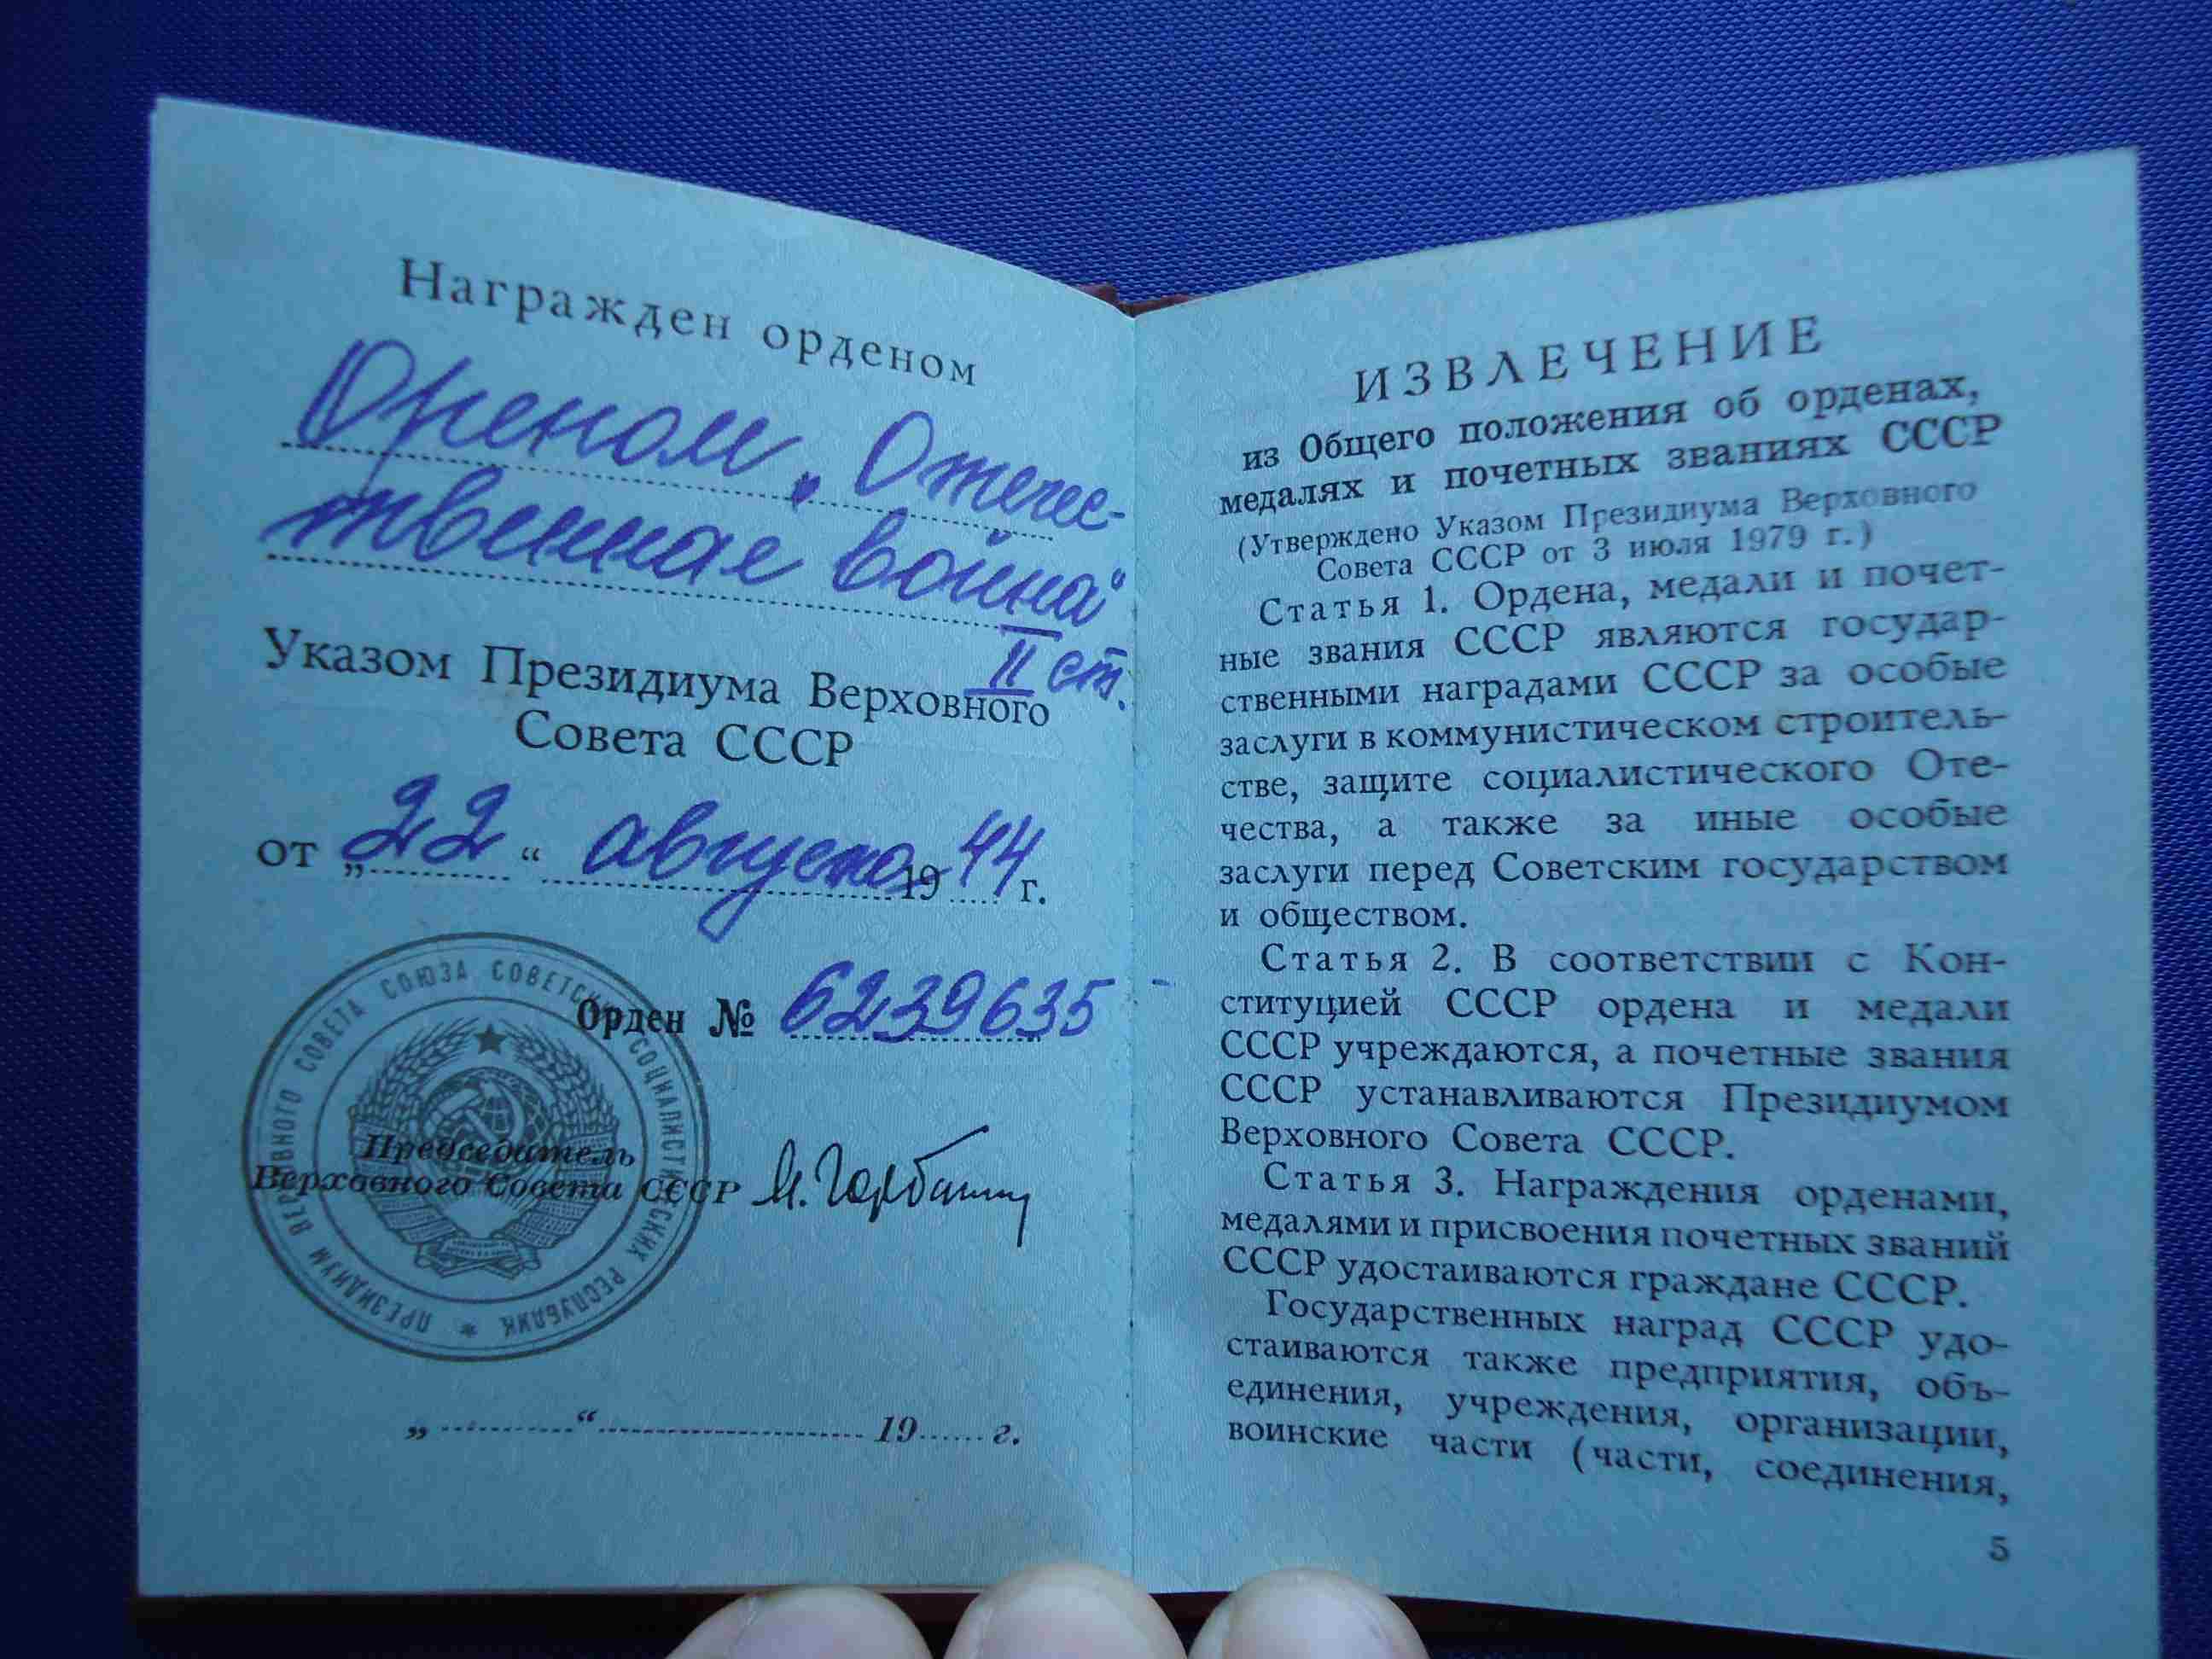 Награжден орденом
Орденом „Отечес-
твенная война“
II ст.
Указом Президиума Верховного
Совета СССР
от „22“ августа 1944 г.
Орден № 6239635
Председатель
Верховного Совета СССР М. Горбачев
ПРЕЗИДИУМ ВЕРХОВНОГО СОВЕТА СОЮЗА СОВЕТСКИХ СОЦИАЛИСТИЧЕСКИХ РЕСПУБЛИК *
„ “ 19 г.
ИЗВЛЕЧЕНИЕ
из Общего положения об орденах,
медалях и почетных званиях СССР
(Утверждено Указом Президиума Верховного
Совета СССР от 3 июля 1979 г.)
Статья 1. Ордена, медали и почет-
ные звания СССР являются государ-
ственными наградами СССР за особые
заслуги в коммунистическом строитель-
стве, защите социалистического Оте-
чества, а также за иные особые
заслуги перед Советским государством
и обществом.
Статья 2. В соответствии с Кон-
ституцией СССР ордена и медали
СССР учреждаются, а почетные звания
СССР устанавливаются Президиумом
Верховного Совета СССР.
Статья 3. Награждения орденами,
медалями и присвоения почетных званий
СССР удостаиваются граждане СССР.
Государственных наград СССР удо-
стаиваются также предприятия, объ-
единения, учреждения, организации,
воинские части (части, соединения,
5